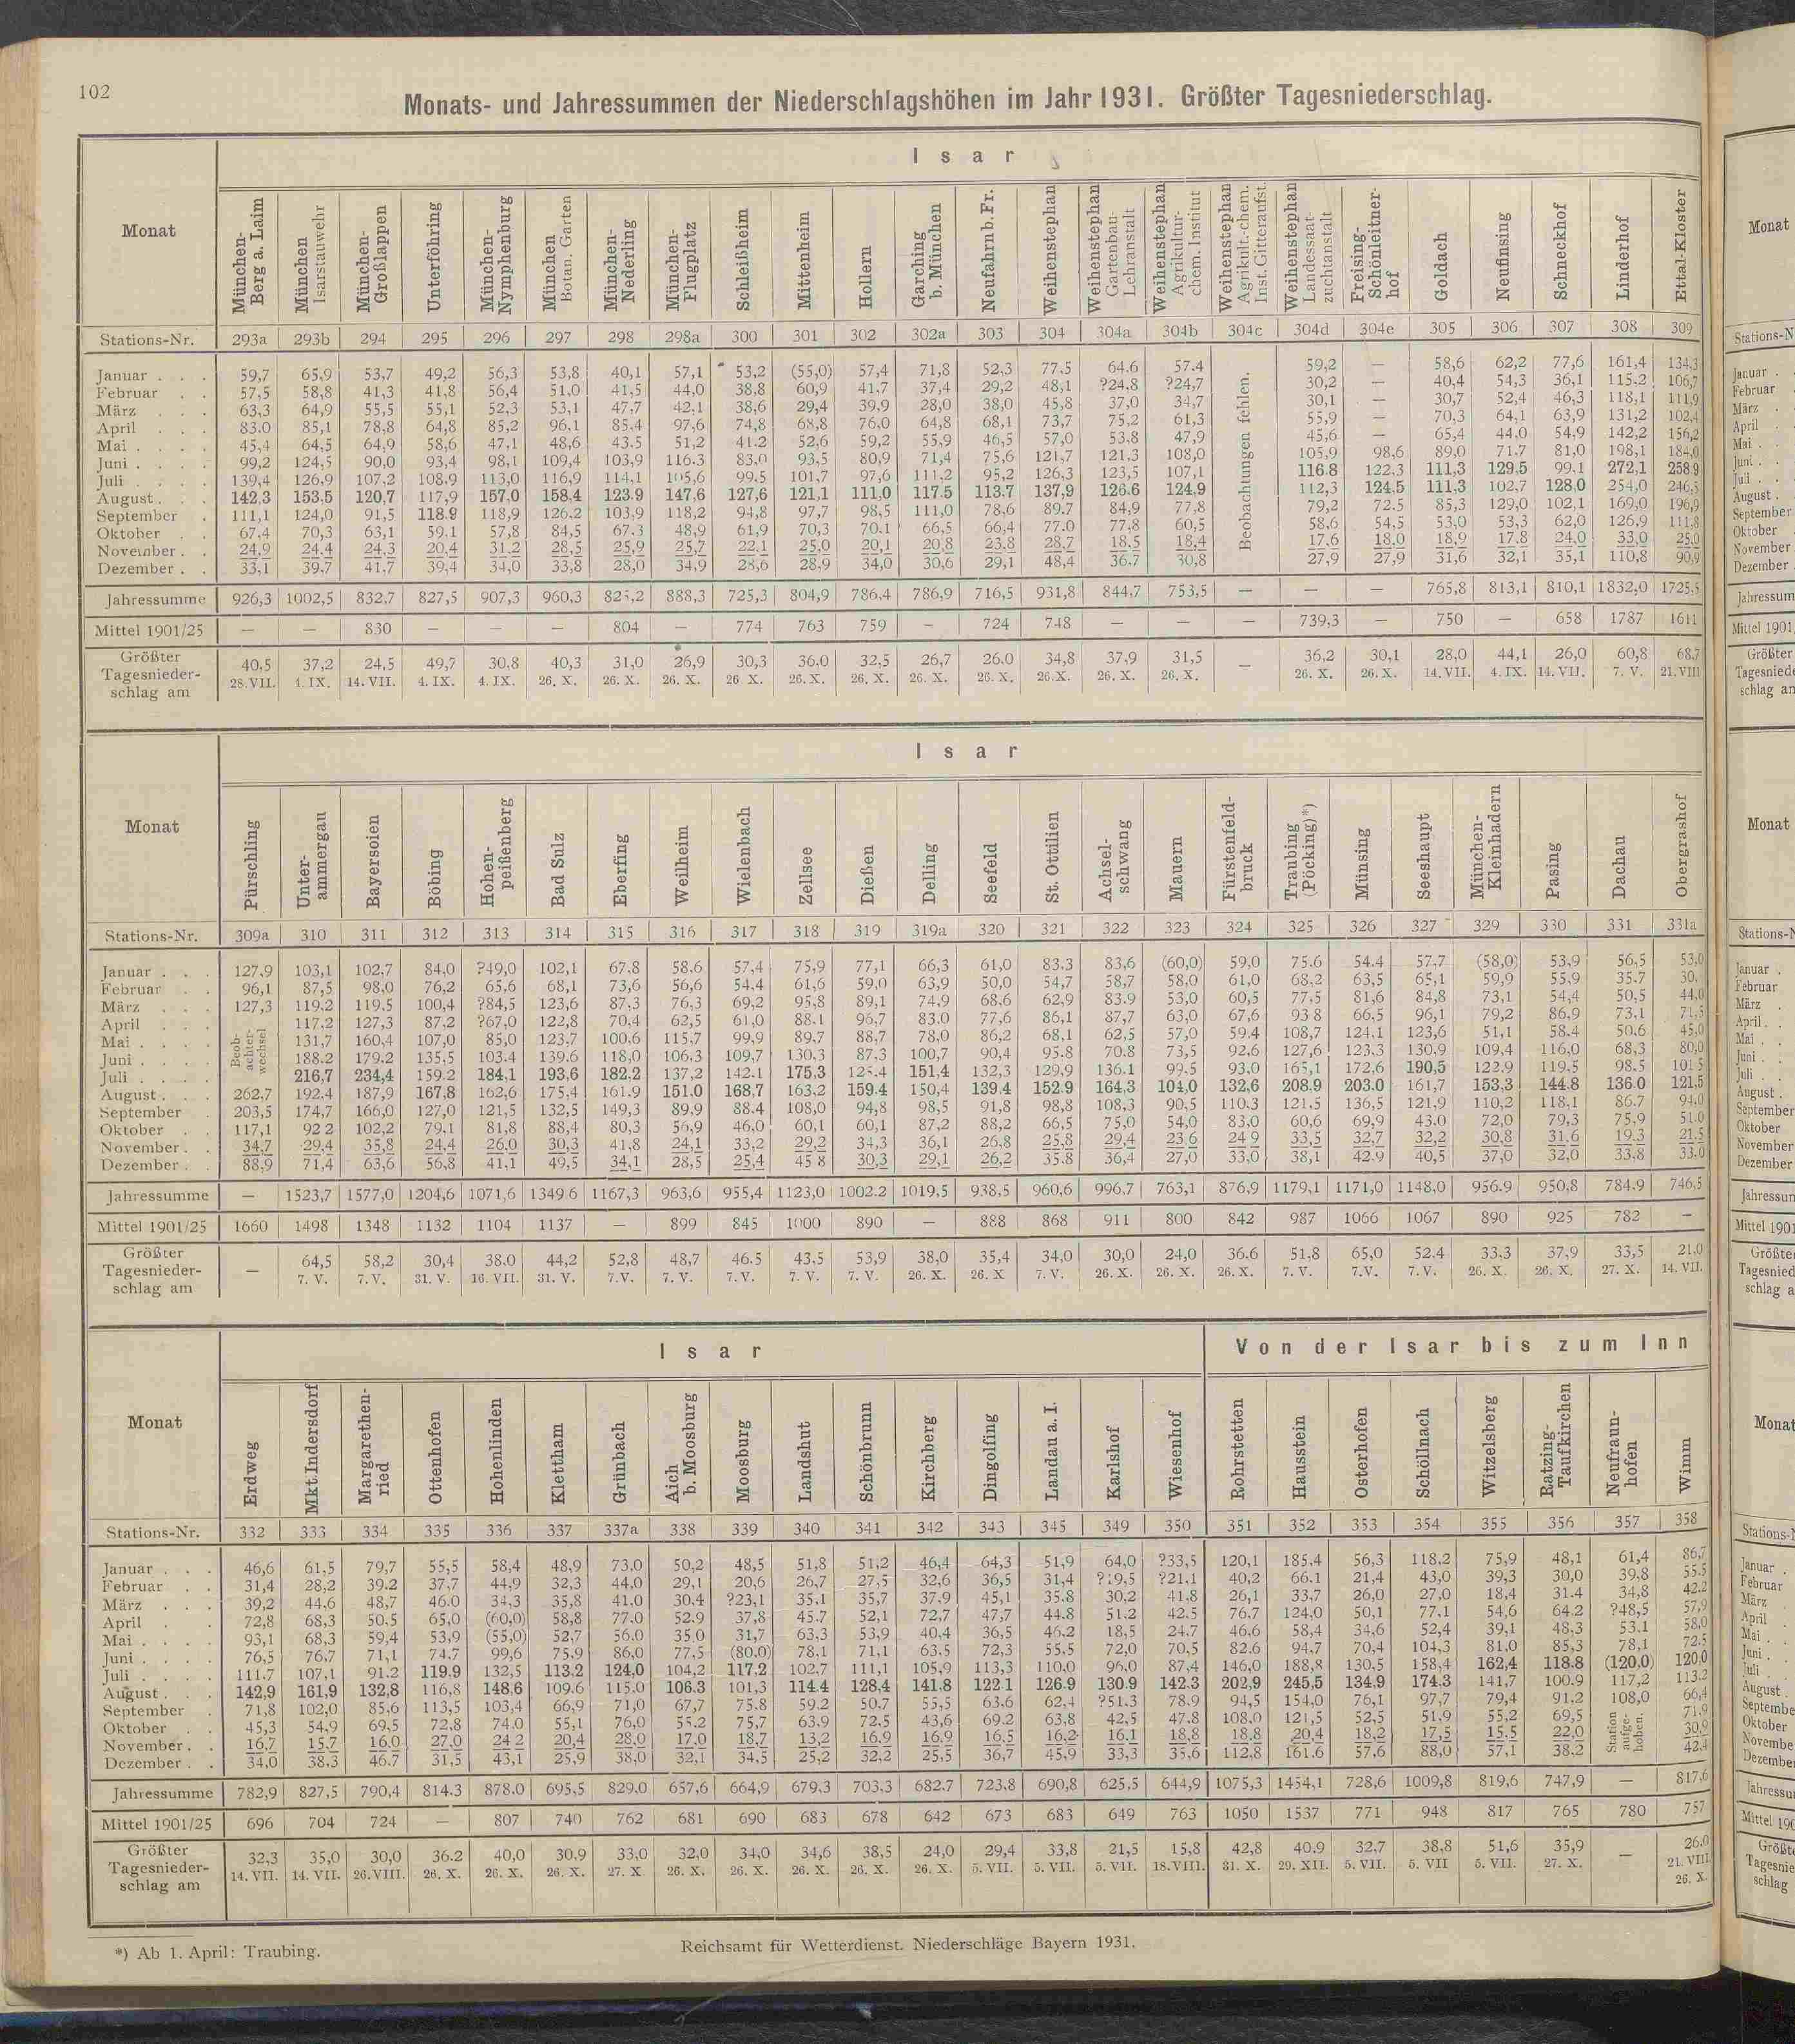 102
Monats- und Jahressummen der Niederschlagshöhen im Jahr 1931. Größter Tagesniederschlag.
Isar
Monat München-Berg a. Laim München Isarstauwehr München-Großlappen Unterföhring München-Nymphenburg München Botan. Garten München-Nederling München-Flugplatz Schleißheim Mittenheim Hollern Garching b. München Neufahrn b. Fr. Weihenstephan Weihenstephan Gartenbau-Lehranstalt Weihenstephan Agrikultur-chem. Institut Weihenstephan Agrikult.-chem. Inst. Gitteraufst. Weihenstephan Landessaat-zuchtanstalt Freising-Schönleitner-hof Goldach Neufinsing Schneckhof Linderhof Ettal-Kloster
Stations-Nr. 293a 293b 294 295 296 297 298 298a 300 301 302 302a 303 304 304a 304b 304c 304d 304e 305 306 307 308 309
Januar . . . 59,7 65,9 53,7 49,2 56,3 53,8 40,1 57,1 53,2 (55,0) 57,4 71,8 52,3 77,5 64,6 57,4 Beobachtungen fehlen. 59,2 — 58,6 62,2 77,6 161,4 134,3
Februar . . 57,5 58,8 41,3 41,8 56,4 51,0 41,5 44,0 38,8 60,9 41,7 37,4 29,2 48,1 ?24,8 ?24,7 30,2 — 40,4 54,3 36,1 115,2 106,7
März . . . 63,3 64,9 55,5 55,1 52,3 53,1 47,7 42,1 38,6 29,4 39,9 28,0 38,0 45,8 37,0 34,7 30,1 — 30,7 52,4 46,3 118,1 111,9
April . . . 83,0 85,1 78,8 64,8 85,2 96,1 85,4 97,6 74,8 68,8 76,0 64,8 68,1 73,7 75,2 61,3 55,9 — 70,3 64,1 63,9 131,2 102,4
Mai . . . . 45,4 64,5 64,9 58,6 47,1 48,6 43,5 51,2 41,2 52,6 59,2 55,9 46,5 57,0 53,8 47,9 45,6 — 65,4 44,0 54,9 142,2 156,2
Juni . . . . 99,2 124,5 90,0 93,4 98,1 109,4 103,9 116,3 83,0 93,5 80,9 71,4 75,6 121,7 121,3 108,0 105,9 98,6 89,0 71,7 81,0 198,1 184,0
Juli . . . . 139,4 126,9 107,2 108,9 113,0 116,9 114,1 105,6 99,5 101,7 97,6 111,2 95,2 126,3 123,5 107,1 116,8 122,3 111,3 129,5 99,1 272,1 258,9
August . . . 142,3 153,5 120,7 117,9 157,0 158,4 123,9 147,6 127,6 121,1 111,0 117,5 113,7 137,9 126,6 124,9 112,3 124,5 111,3 102,7 128,0 254,0 246,5
September . 111,1 124,0 91,5 118,9 118,9 126,2 103,9 118,2 94,8 97,7 98,5 111,0 78,6 89,7 84,9 77,8 79,2 72,5 85,3 129,0 102,1 169,0 196,9
Oktober . . 67,4 70,3 63,1 59,1 57,8 84,5 67,3 48,9 61,9 70,3 70,1 66,5 66,4 77,0 77,8 60,5 58,6 54,5 53,0 53,3 62,0 126,9 111,8
November . . 24,9 24,4 24,3 20,4 31,2 28,5 25,9 25,7 22,1 25,0 20,1 20,8 23,8 28,7 18,5 18,4 17,6 18,0 18,9 17,8 24,0 33,0 25,0
Dezember . . 33,1 39,7 41,7 39,4 34,0 33,8 28,0 34,9 28,6 28,9 34,0 30,6 29,1 48,4 36,7 30,8 27,9 27,9 31,6 32,1 35,1 110,8 90,9
Jahressumme 926,3 1002,5 832,7 827,5 907,3 960,3 825,2 888,3 725,3 804,9 786,4 786,9 716,5 931,8 844,7 753,5 — — — 765,8 813,1 810,1 1832,0 1725,5
Mittel 1901/25 — — 830 — — — 804 — 774 763 759 — 724 748 — — — 739,3 — 750 — 658 1787 1611
Größter Tagesnieder-schlag am 40,5 37,2 24,5 49,7 30,8 40,3 31,0 26,9 30,3 36,0 32,5 26,7 26,0 34,8 37,9 31,5 — 36,2 30,1 28,0 44,1 26,0 60,8 68,7
28.VII. 4. IX. 14. VII. 4. IX. 4. IX. 26. X. 26. X. 26. X. 26 X. 26. X. 26. X. 26. X. 26. X. 26.X. 26. X. 26. X. 26. X. 26. X. 14. VII. 4. IX. 14. VII. 7. V. 21. VIII
Isar
Monat Pürschling Unter-ammergau Bayersoien Böbing Hohen-peißenberg Bad Sulz Eberfing Weilheim Wielenbach Zellsee Dießen Delling Seefeld St. Ottilien Achsel-schwang Mauern Fürstenfeld-bruck Traubing (Pöcking)*) Münsing Seeshaupt München-Kleinhadern Pasing Dachau Obergrashof
Stations-Nr. 309a 310 311 312 313 314 315 316 317 318 319 319a 320 321 322 323 324 325 326 327 329 330 331 331a
Januar . . . 127,9 103,1 102,7 84,0 ?49,0 102,1 67,8 58,6 57,4 75,9 77,1 66,3 61,0 83,3 83,6 (60,0) 59,0 75,6 54,4 57,7 (58,0) 53,9 56,5 53,0
Februar . . 96,1 87,5 98,0 76,2 65,6 68,1 73,6 56,6 54,4 61,6 59,0 63,9 50,0 54,7 58,7 58,0 61,0 68,2 63,5 65,1 59,9 55,9 35,7 30,
März . . . 127,3 119,2 119,5 100,4 ?84,5 123,6 87,3 76,3 69,2 95,8 89,1 74,9 68,6 62,9 83,9 53,0 60,5 77,5 81,6 84,8 73,1 54,4 50,5 44,0
April . . . Beob-achter-wechsel 117,2 127,3 87,2 ?67,0 122,8 70,4 62,5 61,0 88,1 96,7 83,0 77,6 86,1 87,7 63,0 67,6 93 8 66,5 96,1 79,2 86,9 73,1 71,5
Mai . . . . 131,7 160,4 107,0 85,0 123,7 100,6 115,7 99,9 89,7 88,7 78,0 86,2 68,1 62,5 57,0 59,4 108,7 124,1 123,6 51,1 58,4 50,6 45,0
Juni . . . . 188,2 179,2 135,5 103,4 139,6 118,0 106,3 109,7 130,3 87,3 100,7 90,4 95,8 70,8 73,5 92,6 127,6 123,3 130,9 109,4 116,0 68,3 80,0
Juli . . . . 216,7 234,4 159,2 184,1 193,6 182,2 137,2 142,1 175,3 125,4 151,4 132,3 129,9 136,1 99,5 93,0 165,1 172,6 190,5 122,9 119,5 98,5 101 5
August . . . 262,7 192,4 187,9 167,8 162,6 175,4 161,9 151,0 168,7 163,2 159,4 150,4 139,4 152,9 164,3 104,0 132,6 208,9 203,0 161,7 153,3 144,8 136,0 121,5
September . 203,5 174,7 166,0 127,0 121,5 132,5 149,3 89,9 88,4 108,0 94,8 98,5 91,8 98,8 108,3 90,5 110,3 121,5 136,5 121,9 110,2 118,1 86,7 94,0
Oktober . . 117,1 92 2 102,2 79,1 81,8 88,4 80,3 56,9 46,0 60,1 60,1 87,2 88,2 66,5 75,0 54,0 83,0 60,6 69,9 43,0 72,0 79,3 75,9 51,0
November . . 34,7 29,4 35,8 24,4 26,0 30,3 41,8 24,1 33,2 29,2 34,3 36,1 26,8 25,8 29,4 23 6 24 9 33,5 32,7 32,2 30,8 31,6 19,3 21,5
Dezember . . 88,9 71,4 63,6 56,8 41,1 49,5 34,1 28,5 25,4 45 8 30,3 29,1 26,2 35,8 36,4 27,0 33,0 38,1 42,9 40,5 37,0 32,0 33,8 33,0
Jahressumme — 1523,7 1577,0 1204,6 1071,6 1349,6 1167,3 963,6 955,4 1123,0 1002,2 1019,5 938,5 960,6 996,7 763,1 876,9 1179,1 1171,0 1148,0 956,9 950,8 784,9 746,5
Mittel 1901/25 1660 1498 1348 1132 1104 1137 — 899 845 1000 890 — 888 868 911 800 842 987 1066 1067 890 925 782 —
Größter Tagesnieder-schlag am — 64,5 58,2 30,4 38,0 44,2 52,8 48,7 46,5 43,5 53,9 38,0 35,4 34,0 30,0 24,0 36,6 51,8 65,0 52,4 33,3 37,9 33,5 21,0
7. V. 7. V. 31. V. 16. VII. 31. V. 7.V. 7. V. 7.V. 7. V. 7. V. 26. X. 26. X 7. V. 26. X. 26. X. 26. X. 7. V. 7.V. 7. V. 26. X. 26. X. 27. X. 14. VII.
Isar Von der Isar bis zum Inn
Monat Erdweg Mkt.Indersdorf Margarethen-ried Ottenhofen Hohenlinden Klettham Grünbach Aich b. Moosburg Moosburg Landshut Schönbrunn Kirchberg Dingolfing Landau a. I. Karlshof Wiesenhof Rohrstetten Hausstein Osterhofen Schöllnach Witzelsberg Ratzing-Taufkirchen Neufraun-hofen Wimm
Stations-Nr. 332 333 334 335 336 337 337a 338 339 340 341 342 343 345 349 350 351 352 353 354 355 356 357 358
Januar . . . 46,6 61,5 79,7 55,5 58,4 48,9 73,0 50,2 48,5 51,8 51,2 46,4 64,3 51,9 64,0 ?33,5 120,1 185,4 56,3 118,2 75,9 48,1 61,4 86,7
Februar . . 31,4 28,2 39,2 37,7 44,9 32,3 44,0 29,1 20,6 26,7 27,5 32,6 36,5 31,4 ?21,1 40,2 66,1 21,4 43,0 39,3 30,0 39,8 55,5
März . . . 39,2 44,6 48,7 46,0 34,3 35,8 41,0 30,4 ?23,1 35,1 35,7 37,9 45,1 35,8 30,2 41,8 26,1 33,7 26,0 27,0 18,4 31,4 34,8 42,2
April . . 72,8 68,3 50,5 65,0 (60,0) 58,8 77,0 52,9 37,8 45,7 52,1 72,7 47,7 44,8 51,2 42,5 76,7 124,0 50,1 77,1 54,6 64,2 ?48,5 57,9
Mai . . . . 93,1 68,3 59,4 53,9 (55,0) 52,7 56,0 35,0 31,7 63,3 53,9 40,4 36,5 46,2 18,5 24,7 46,6 58,4 34,6 52,4 39,1 48,3 53,1 58,0
Juni . . . . 76,5 76,7 71,1 74,7 99,6 75,9 86,0 77,5 (80,0) 78,1 71,1 63,5 72,3 55,5 72,0 70,5 82,6 94,7 70,4 104,3 81,0 85,3 78,1 72,5
Juli . . . . 111,7 107,1 91,2 119,9 132,5 113,2 124,0 104,2 117,2 102,7 111,1 105,9 113,3 110,0 96,0 87,4 146,0 188,8 130,5 158,4 162,4 118,8 (120,0) 120,0
August . . . 142,9 161,9 132,8 116,8 148,6 109,6 115,0 106,3 101,3 114,4 128,4 141,8 122,1 126,9 130,9 142,3 202,9 245,5 134,9 174,3 141,7 100,9 117,2 113,2
September . 71,8 102,0 85,6 113,5 103,4 66,9 71,0 67,7 75,8 59,2 50,7 55,5 63,6 62,4 ?51,3 78,9 94,5 154,0 76,1 97,7 79,4 91,2 108,0 66,4
Oktober . . 45,3 54,9 69,5 72,8 74,0 55,1 76,0 55,2 75,7 63,9 72,5 43,6 69,2 63,8 42,5 47,8 108,0 121,5 52,5 51,9 55,2 69,5 Station aufge-hoben. 71,9
November . . 16,7 15,7 16,0 27,0 24 2 20,4 28,0 17,0 18,7 13,2 16,9 16,9 16,5 16,2 16,1 18,8 18,8 20,4 18,2 17,5 15,5 22,0 30,9
Dezember . . 34,0 38,3 46,7 31,5 43,1 25,9 38,0 32,1 34,5 25,2 32,2 25,5 36,7 45,9 33,3 35,6 112,8 161,6 57,6 88,0 57,1 38,2 42,4
Jahressumme 782,9 827,5 790,4 814,3 878,0 695,5 829,0 657,6 664,9 679,3 703,3 682,7 723,8 690,8 625,5 644,9 1075,3 1454,1 728,6 1009,8 819,6 747,9 — 817,6
Mittel 1901/25 696 704 724 — 807 740 762 681 690 683 678 642 673 683 649 763 1050 1537 771 948 817 765 780 757
Größter Tagesnieder-schlag am 32,3 35,0 30,0 36,2 40,0 30,9 33,0 32,0 34,0 34,6 38,5 24,0 29,4 33,8 21,5 15,8 42,8 40,9 32,7 38,8 51,6 35,9 — 26,0
14. VII. 14. VII. 26.VIII. 26. X. 26. X. 26. X. 27. X 26. X. 26. X. 26. X. 26. X. 26. X. 5. VII. 5. VII. 5. VII. 18.VIII. 31. X. 29. XII. 5. VII. 5. VII 5. VII. 27. X. 21. VIII.
26. X.
*) Ab 1. April: Traubing.
Reichsamt für Wetterdienst. Niederschläge Bayern 1931.
Monat
Stations-N
Januar .
Februar
März
April
Mai . .
Juni . .
Juli . .
August .
September
Oktober
November
Dezember
Jahressum
Mittel 1901
Größter
Tagesniede
schlag an
Monat
Stations-N
Januar .
Februar
März
April . .
Mai . .
Juni . .
Juli . .
August .
September
Oktober
November
Dezember
Jahressun
Mittel 1901
Größte
Tagesnied
schlag a
Monat
Stations-
Januar .
Februar
März
April .
Mai . .
Juni . .
Juli . .
August
Septembe
Oktober
Novembe
Dezember
Jahressu
Mittel 190
Größt
Tagesnie
schlag